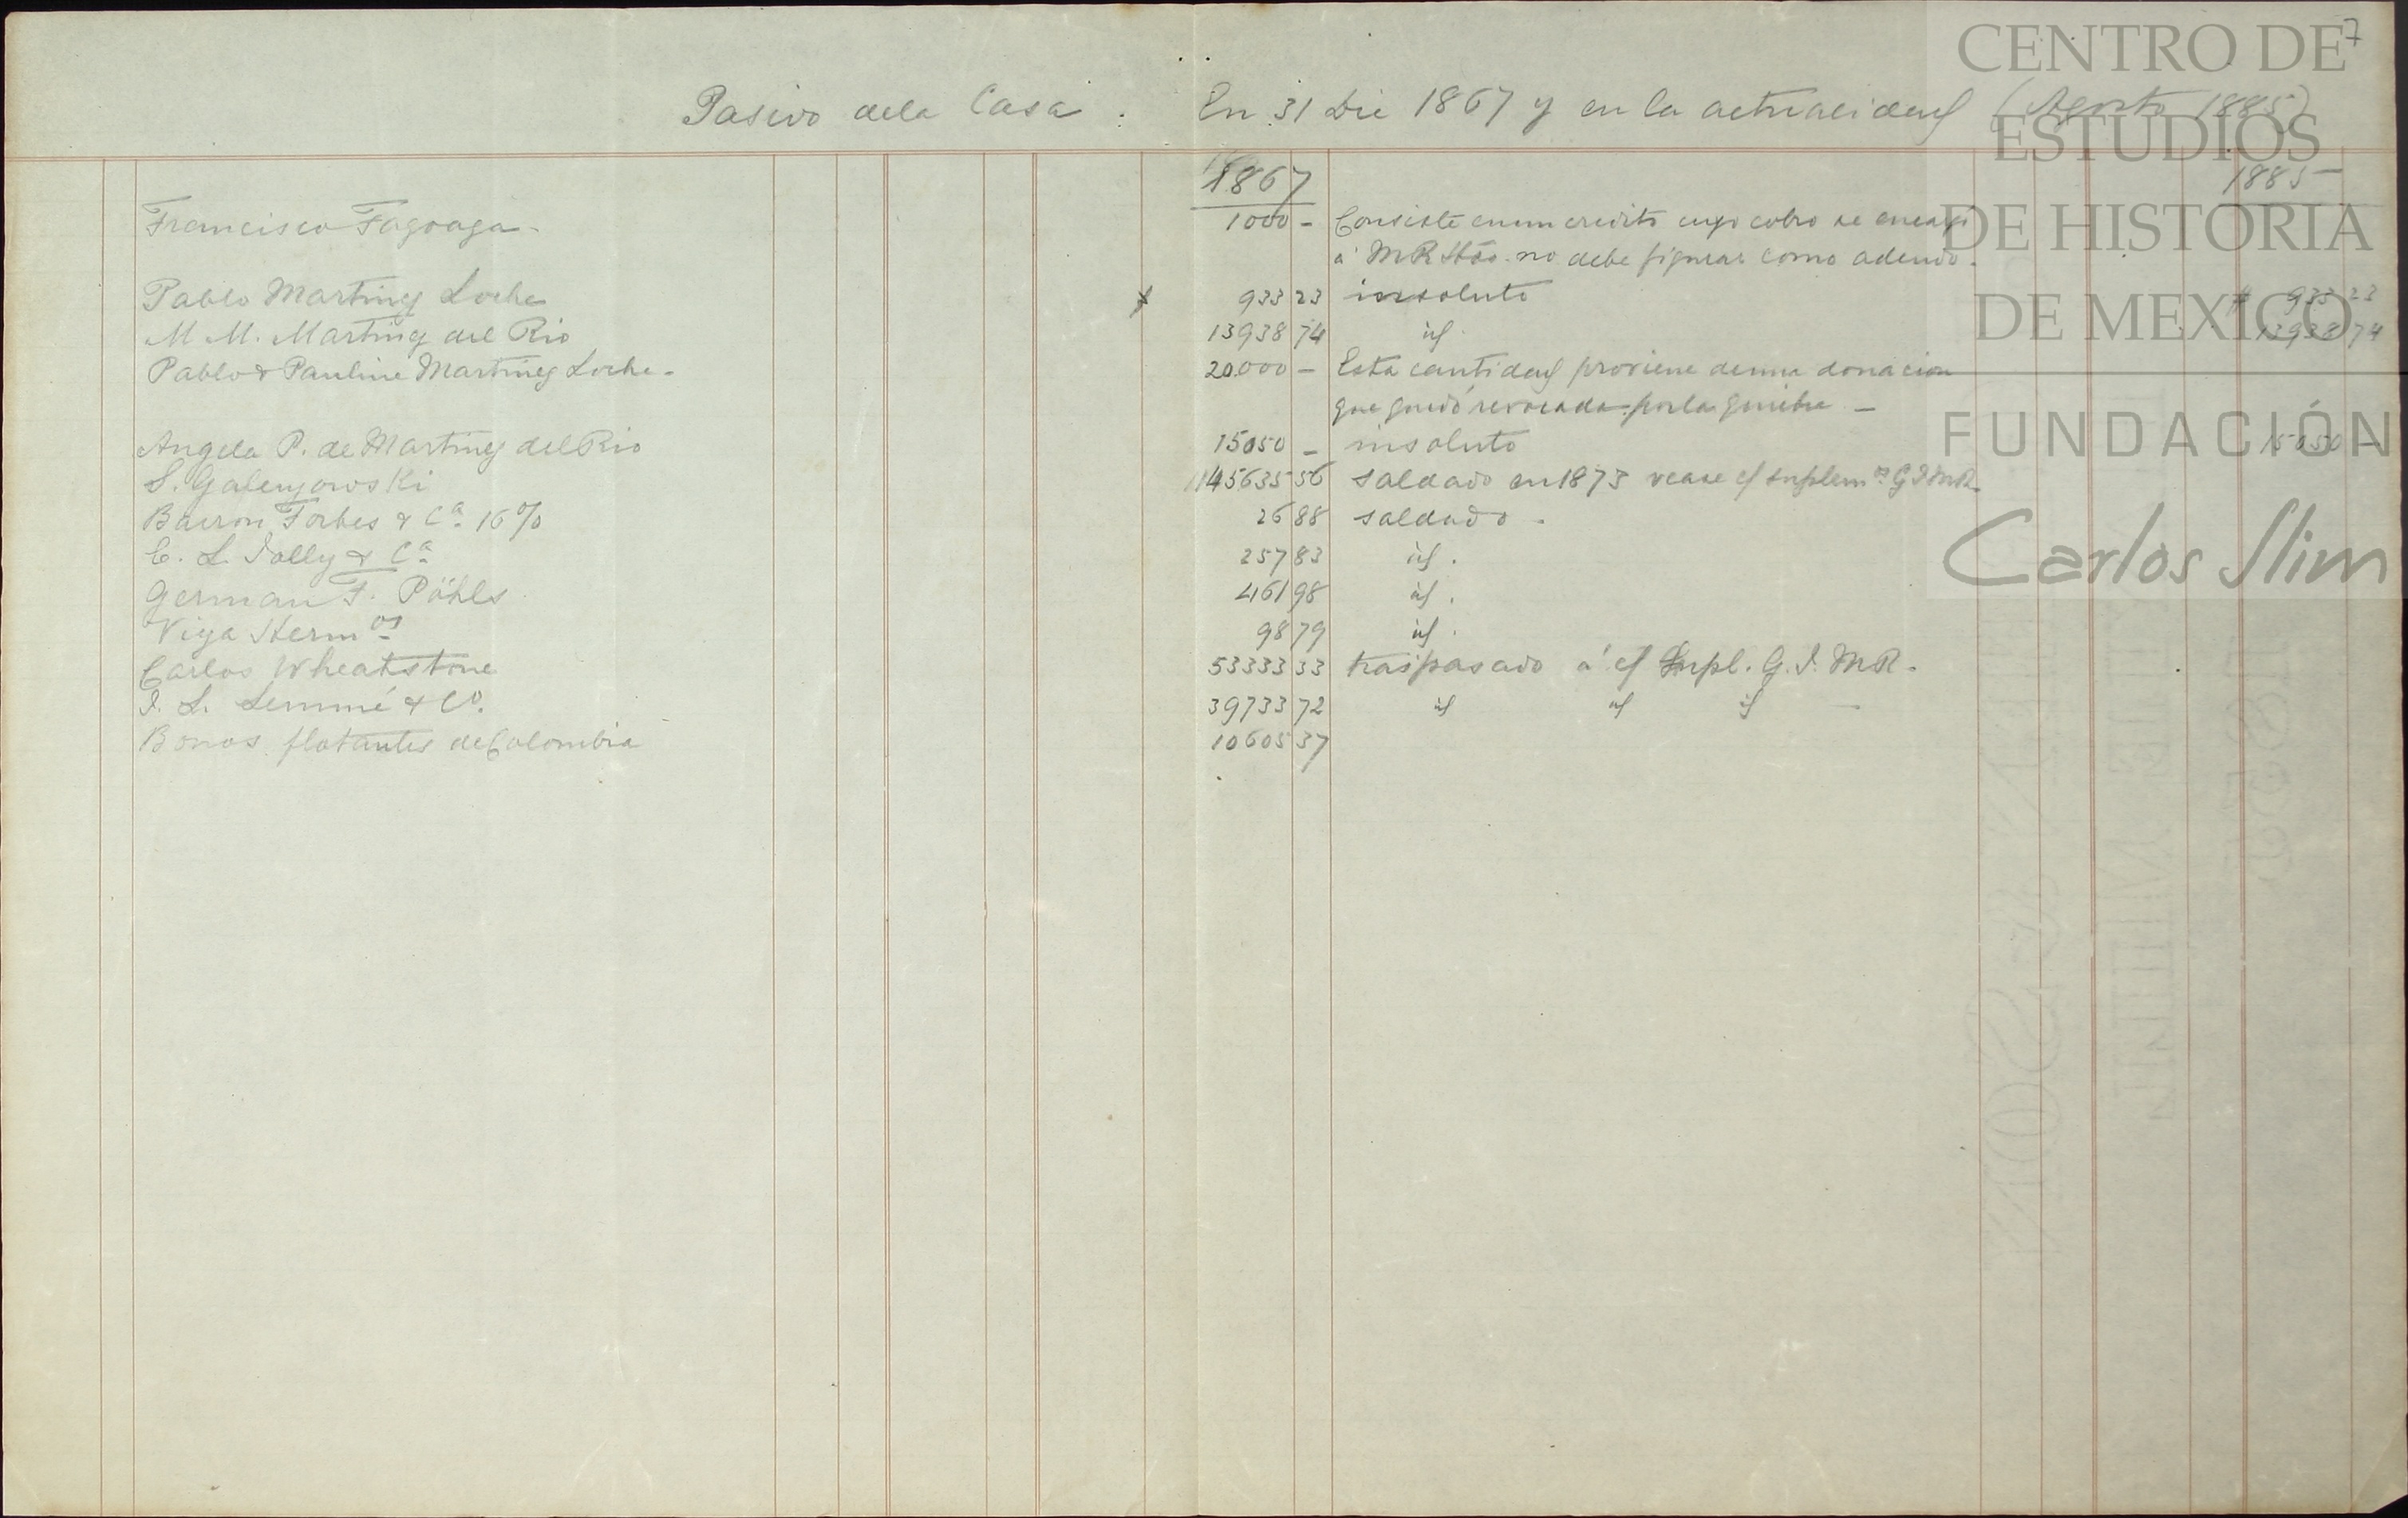 7
Pasivo dela Casa. En 31 Dic 1867 y en la actualidad (Agosto 1885)
1867 1885
Francisco Fagoaga - 1000 - Consiste en un credito cuyo cobro se encargó
á MR Hos. no debe figurar como adeudo.
Pablo Martinez Loche 933 23 insoluto $ 933 23
M. M. Martinez del Rio 13938 74 id. 13938 74
Pablo & Pauline Martinez Loche - 20.000 - Esta cantidad proviene de una donacion
que quedó revocada por la quiebra -
Angela P. de Martinez del Rio 15050 - insoluto 15050 -
S. Galezowski 145635 56 saldado en 1873 vease c/ suplem os G I MR
Barron Forbes & Ca. 16% 26 88 saldado.
E. L. Jolly & Ca 257 83 id.
German F. Pöhls 461 98 id.
Viya Herm os 98 79 id.
Carlos Wheatstone 53333 33 traspasado á c/ Supl. G. I. MR.
I. L. Lemmé & Co. 39733 72 id id id -
Bonos flotantes de Colombia 10605 37
CENTRO DE
ESTUDIOS
DE HISTORIA
DE MEXICO
FUNDACIÓN
Carlos Slim